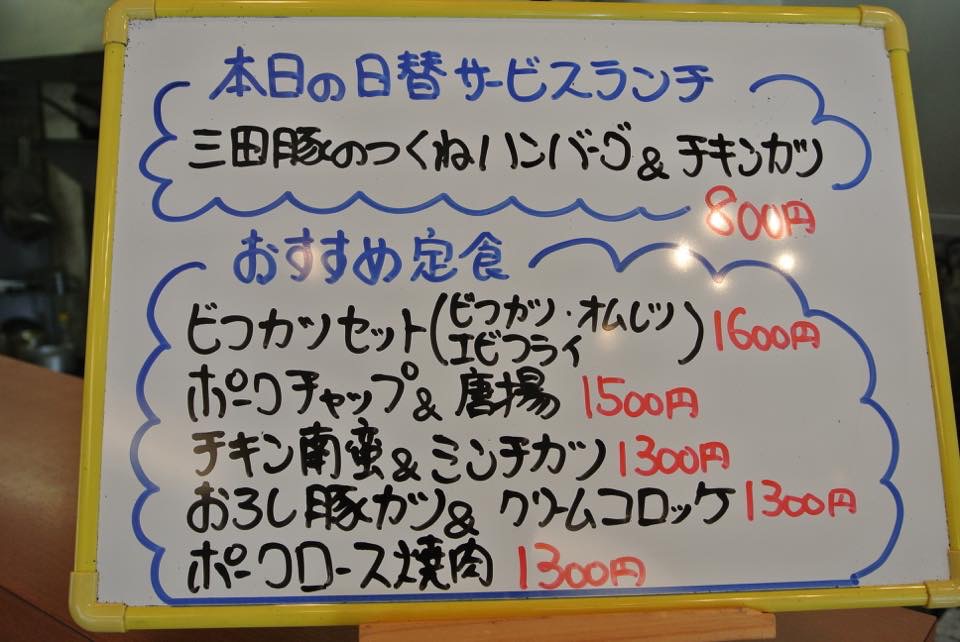 本日の日替サービスランチ
三田豚のつくねハンバーグ&チキンカツ
800円
おすすめ定食
ビフカツセット(ビフカツ・オムレツ
エビフライ) 1600円
ポークチャップ&唐揚 1500円
チキン南蛮&ミンチカツ 1300円
おろし豚カツ&クリームコロッケ 1300円
ポークロース焼肉 1300円